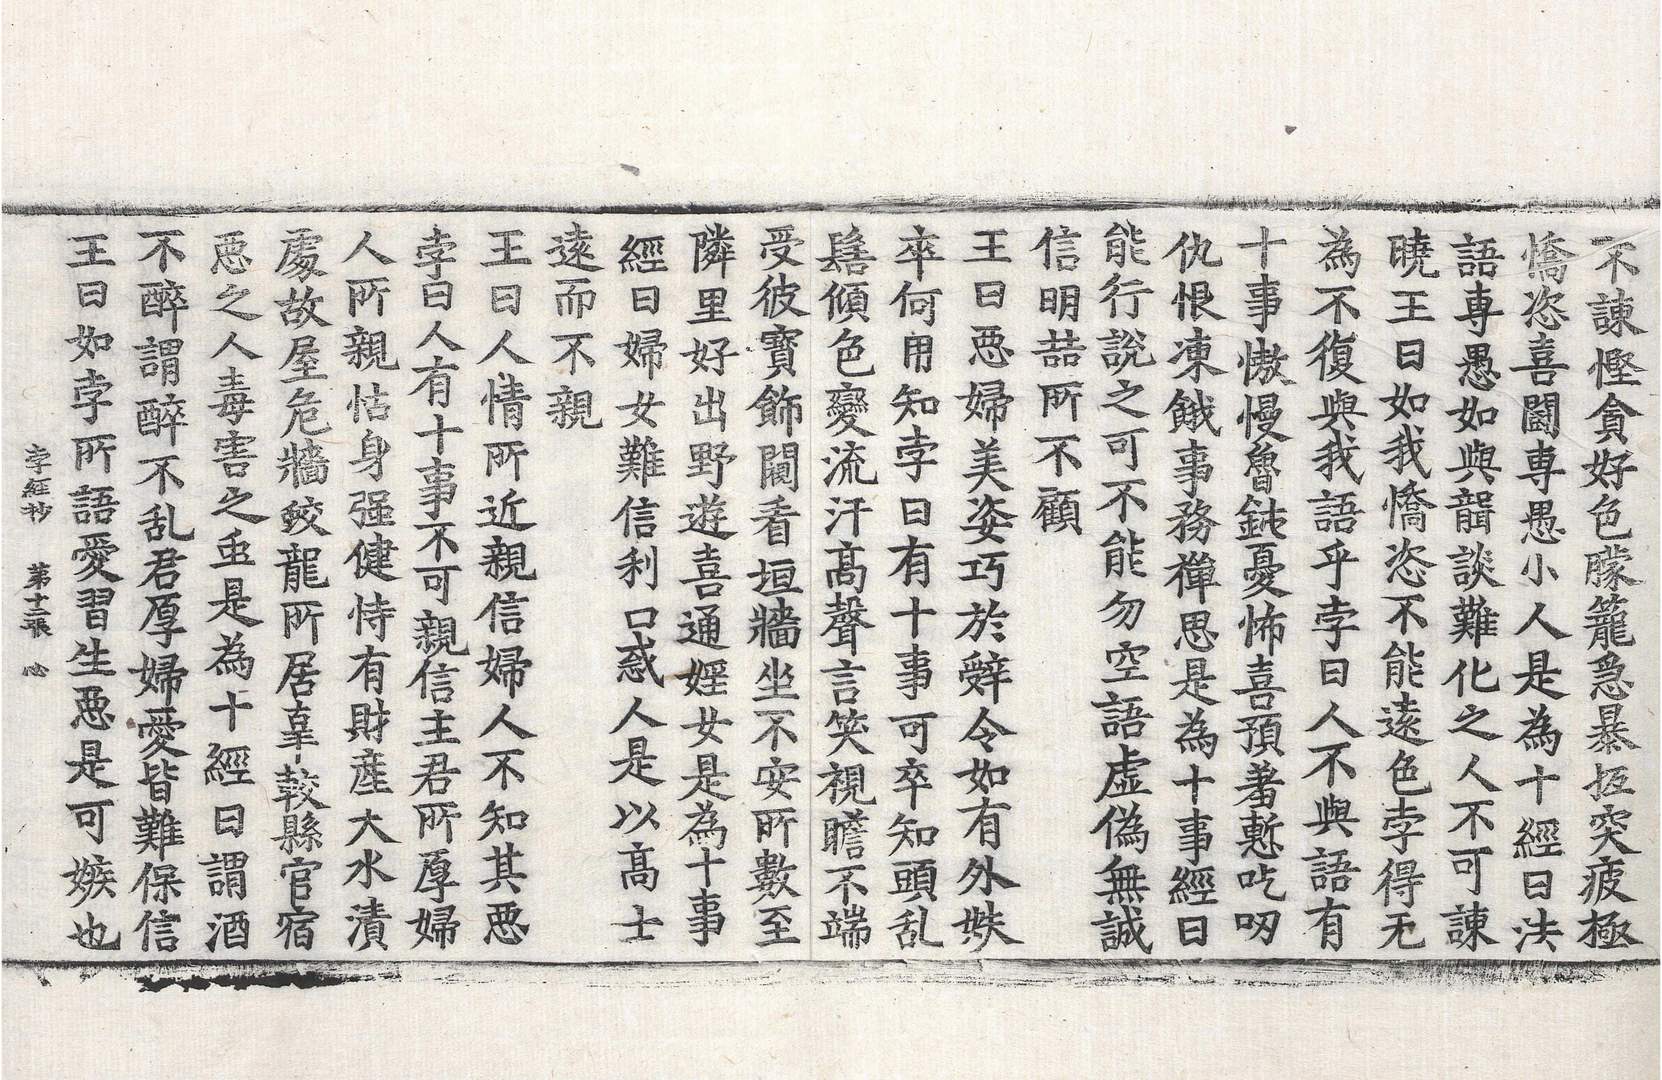 不諫慳貪好色朦籠急暴抂突疲極
憍恣喜鬪專愚小人是為十經曰法
語專愚如與聾談難化之人不可諫
曉王曰如我憍恣不能遠色孛得无
為不復與我語乎孛曰人不與語有
十事慠慢魯鈍憂怖喜預羞慙吃吶
仇恨凍餓事務禪思是為十事經曰
能行說之可不能勿空語虛偽無誠
信明喆所不顧
王曰惡婦美姿巧於辭令如有外婬
卒何用知孛曰有十事可卒知頭乱
髻傾色變流汗高聲言笑視瞻不端
受彼寶飾闚看垣牆坐不安所數至
隣里好出野遊喜通婬女是為十事
經曰婦女難信利口惑人是以高士
遠而不親
王曰人情所近親信婦人不知其惡
孛曰人有十事不可親信主君所厚婦
人所親怙身强健恃有財產大水漬
處故屋危牆蛟龍所居辜較縣官宿
惡之人毒害之虫是為十經曰謂酒
不醉謂醉不乱君厚婦愛皆難保信
王曰如孛所語愛習生惡是可嫉也
孛經抄 第十二張 念